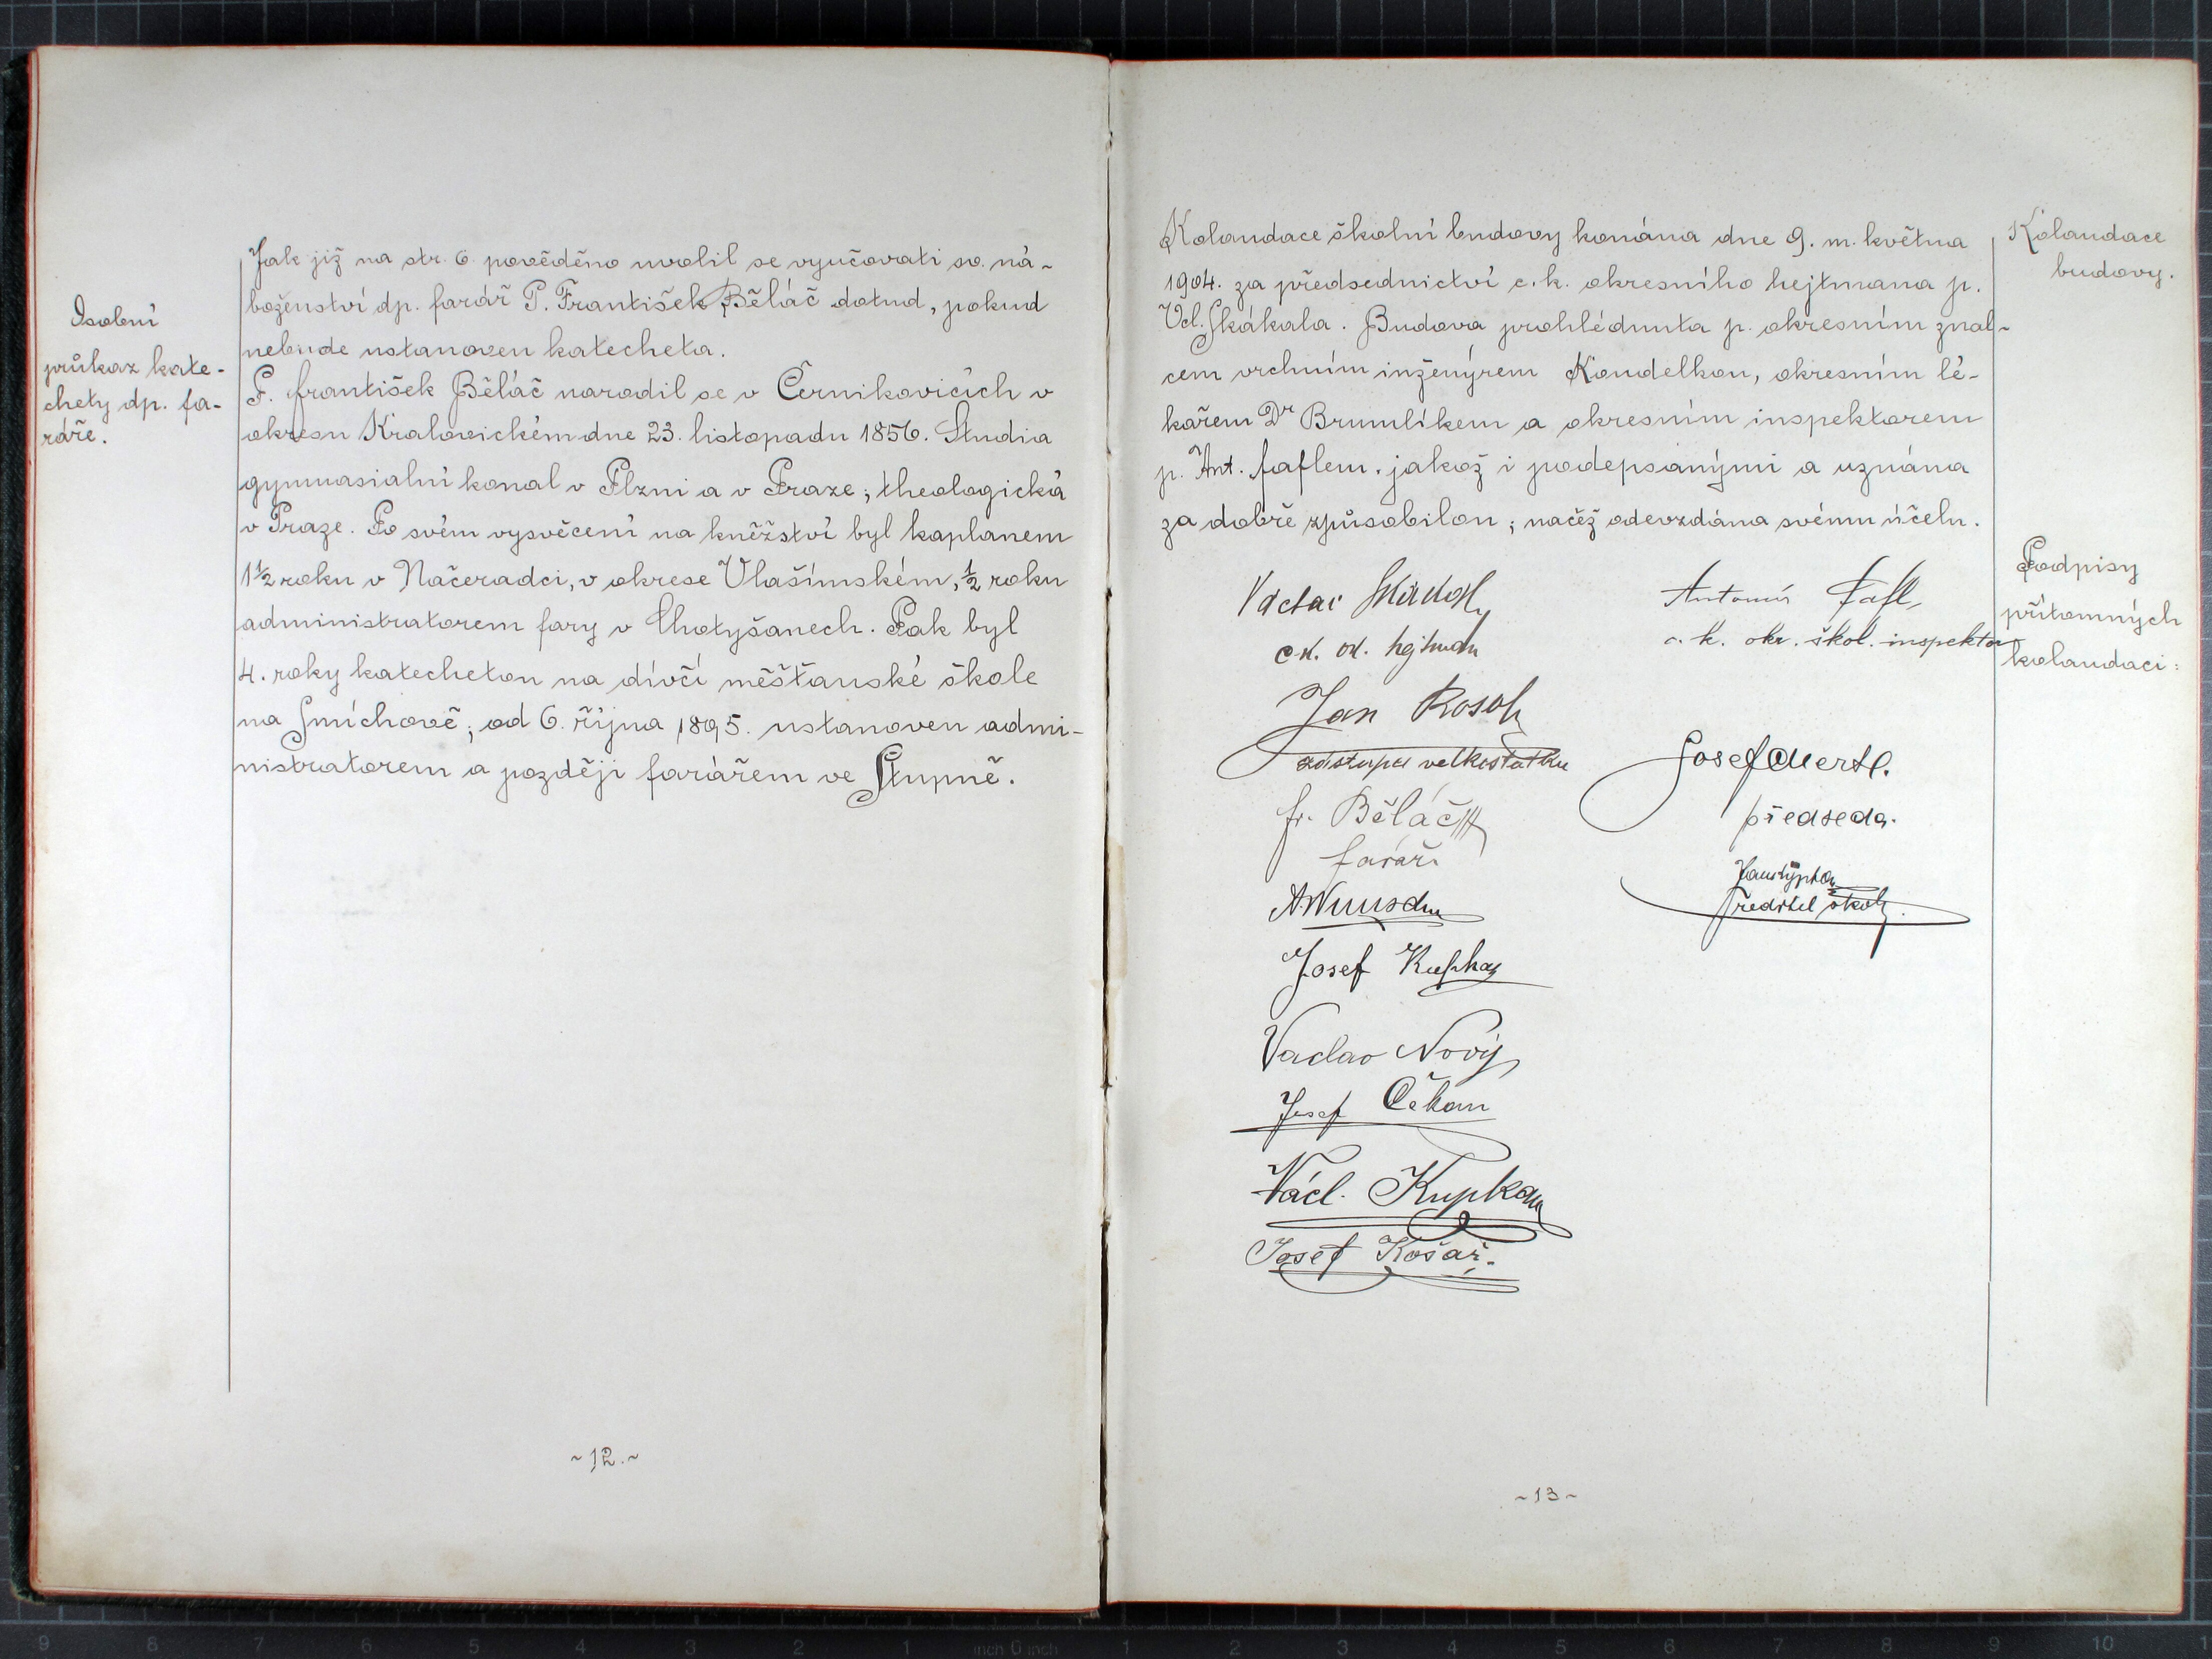 Osobní
průkaz kate-
chety dp. fa-
ráře.
Jak již na str. 6. pověděno uvolil se vyučovati sv. ná-
boženství dp. farář P. František Běláč dotud, pokud
nebude ustanoven katecheta.
P. František Běláč narodil se v Černikovicích v
okresu Kralovickém dne 23. listopadu 1856. Studia
gymnasialní konal v Plzni a v Praze; theologická
v Praze. Po svém vysvěcení na kněžství byl kaplanem
1 1/2 roku v Načeradci, v okrese Vlašimském, 1/2 roku
administratorem fary v Chotyšanech. Pak byl
4. roky katechetou na dívčí měšťanské škole
na Smíchově; od 6. října 1895. ustanoven admi-
nistratorem a později farářem ve Stupně.
~12.~
Kolaudace školní budovy konána dne 9. m. května
1904. za předsednictví c. k. okresního hejtmana p.
Vcl. Skákala. Budova prohlédnuta p. okresním znal-
cem vrchním inženýrem Koudelkou, okresním lé-
kařem Dr Brumlíkem a okresním inspektorem
p. Ant. Faflem. jakož i podepsanými a uznána
za dobře způsobilou; načež odevzdána svému účelu.
Kolaudace
budovy.
Podpisy
přítomných
kolaudaci:
Václav
c. k. ok. hejtman
Antonín Fafl,
c. k. okr. škol. inspektor
Jan
zástupce velkostatku
Josef Mertl.
předseda.
fr. Běláč
farář.
ředitel školy.
Josef Kupka
Vaclav Nový
Josef Čekan
Václ. Kupka
Josef Košař.
~13~